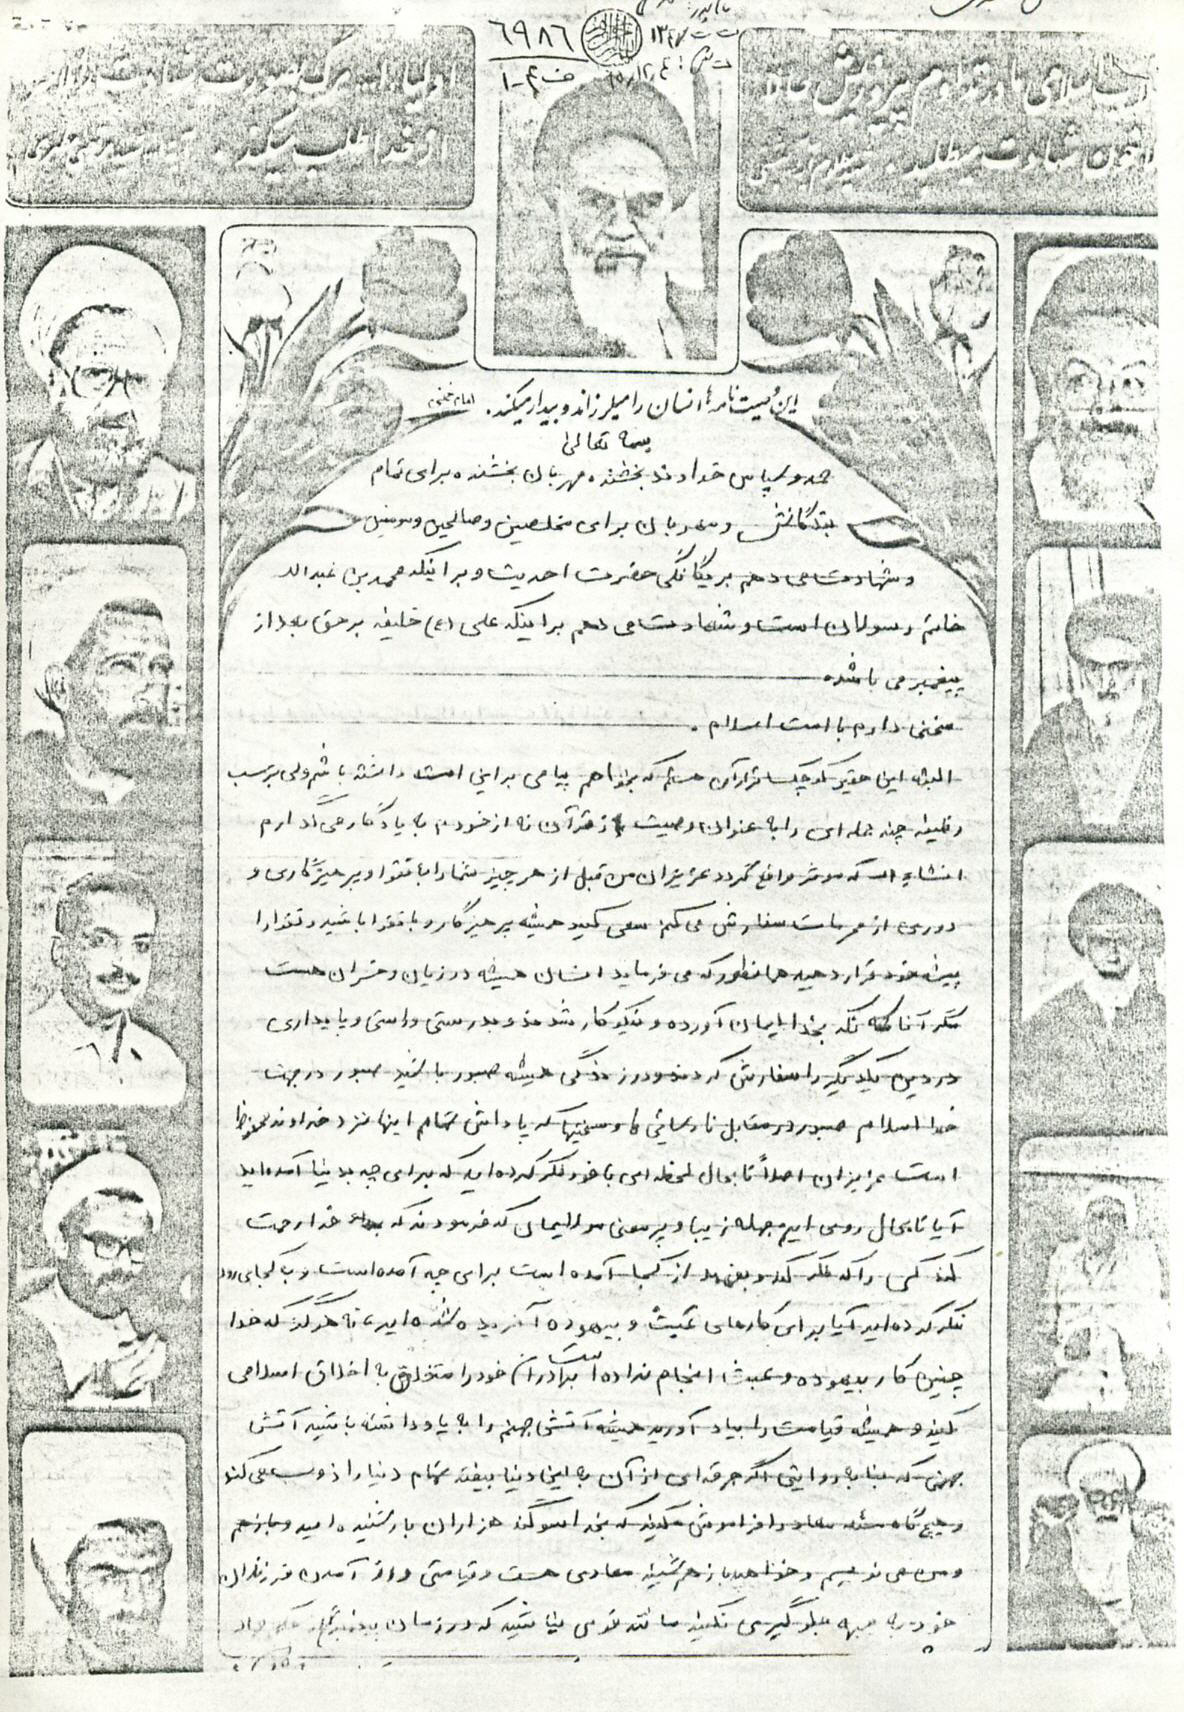 ۶۹۸۶
این وصیت نامه ها انسان را میلرزاند و بیدار میکند. امام خمینی
بسمه تعالی
حمد و سپاس خداوند بخشنده مهربان بخشنده برای تمام
بندگانش و مهربان برای مخلصین و صالحین و مومنین
و شهادت می دهم بر یگانگی حضرت احدیت و بر اینکه محمد بن عبدالله
خاتم رسولان است و شهادت می دهم بر اینکه علی (ع) خلیفه بر حق بعد از
پیغمبر می باشد
سخنی دارم با امت اسلام .
البته این حقیر کوچکتر از آن هستم که بخواهم پیامی بر این امت داشته باشم ولی بر حسب
وظیفه چند جمله ای را به عنوان وصیت از قرآن نه از خودم به یادگار می گذارم
انشاءالله که موثر واقع گردد عزیزان من قبل از هر چیز شما را با تقوا و پرهیزگاری و
دوری از محرمات سفارش می کنم سعی کنید همیشه پرهیزگار و با تقوا باشید و تقوا را
پیشه خود قرار دهید همانطور که می فرماید انسان همیشه در زیان و خسران هست
مگر آنا نکه بخدا ایمان آورده و نیکو کار شدند و بدرستی و راستی و پایداری
در دین یکدیگر را سفارش کردند و در زندگی همیشه صبور باشید صبور در جهت
خدا اسلام صبور در مقابل نارسائی ها و سختیها که پاداش تمام اینها نزد خداوند محفوظ
است عزیزان اصلاً تا بحال لحظه ای با خود فکر کرده اید که برای چه بدنیا آمده اید
آیا تا بحال روی این جمله زیبا و پر معنی مولایمان که فرمودند که خدا رحمت
کند کسی را که فکر کند و بفهمد از کجا آمده است برای چه آمده است و به کجا می رود
فکر کرده اید آیا برای کارهای عبث و بیهوده آفریده شده اید، نه هرگز که خدا
چنین کار بیهوده و عبث انجام نداده است برادران خود را متخلق به اخلاق اسلامی
کنید و همیشه قیامت را بیاد آورید همیشه آتش جهنم را به یاد داشته باشید آتش
جهنمی که بنا به روایتی اگر جرقه ای از آن به این دنیا بیفتد تمام دنیا را ذوب می کند
و هیچگاه مسئله معاد را فراموش نکنید که بخدا سوگند هزاران بار شنیده اید و باز هم
و من می نویسم و خواهید باز هم شنید معادی هست و قیامتی و از آمدن فرزندان
خود به جبهه جلوگیری نکنید مانند قومی نباشید که در زمان پیغمبر